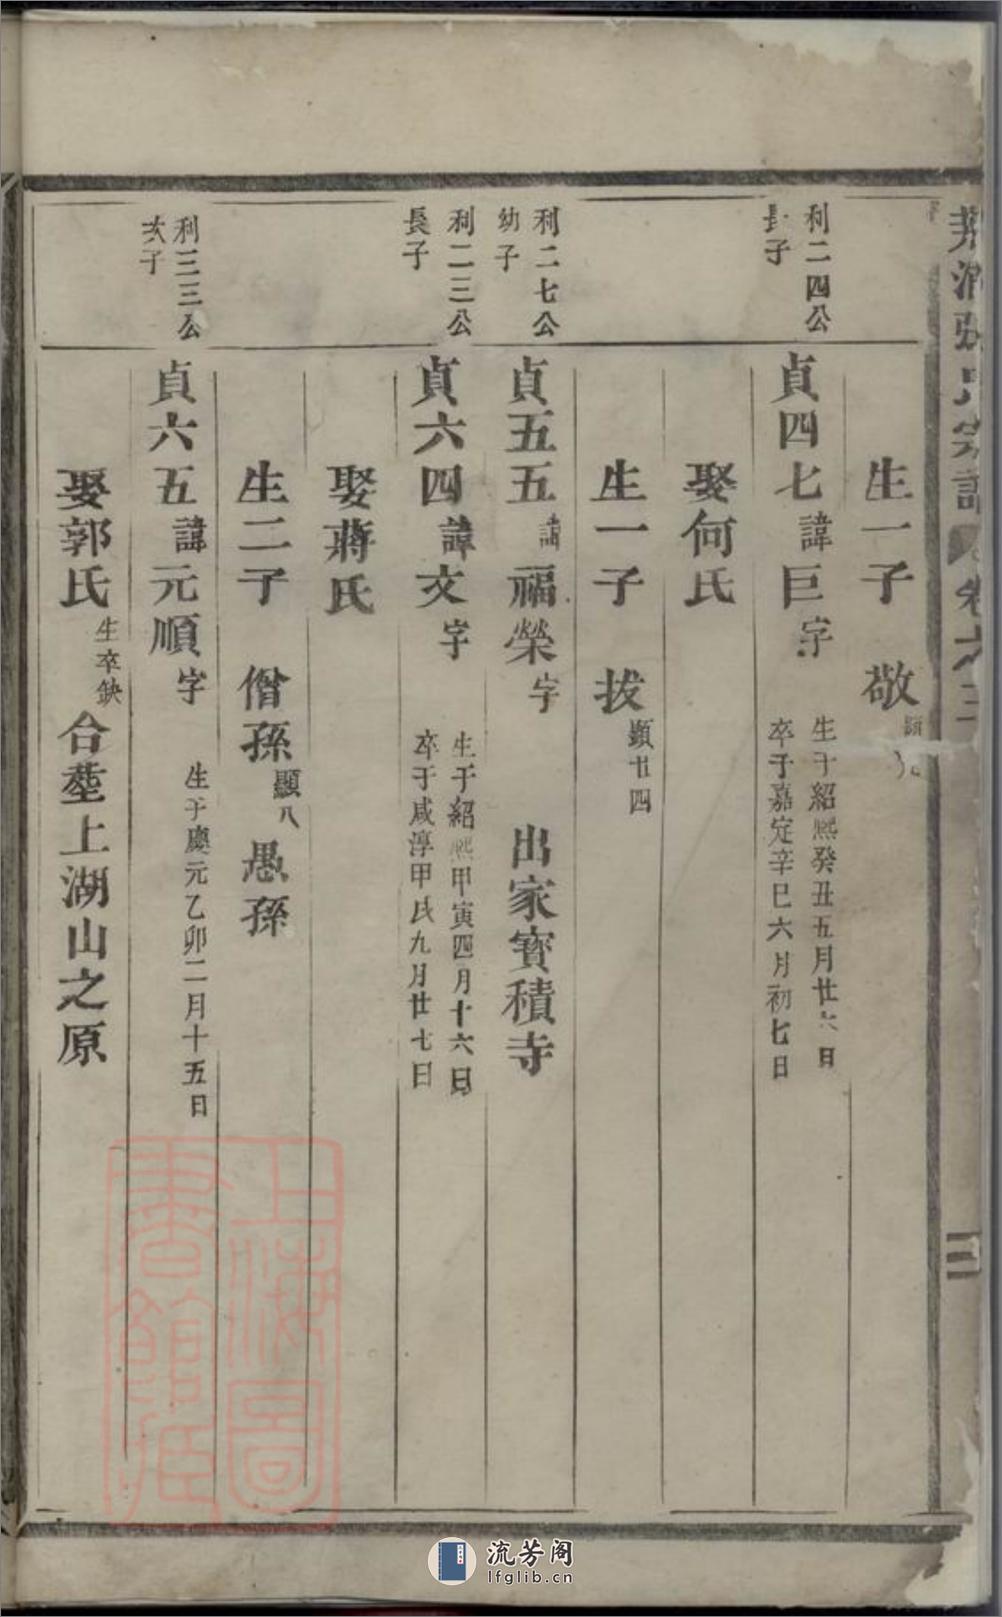 氏宗譜 卷六
三
生一子 敬 顯
利二四公
長子
貞四七諱巨字
生于紹熙癸丑五月廿六日
卒于嘉定辛巳六月初七日
娶何氏
生一子 拔 顯廿四
利二七公
幼子
貞五五諱福榮字 出家寳積寺
利二三公
長子
貞六四諱文字
生于紹熙甲寅四月十六日
卒于咸淳甲戌九月廿七日
娶蔣氏
生二子 僧孫 顯八 愚孫
利三三公
次子
貞六五諱元順字 生于慶元乙卯二月十五日
娶郭氏 生卒缺 合塟上湖山之原
上海圖
書館藏
流芳阁
lfglib.cn